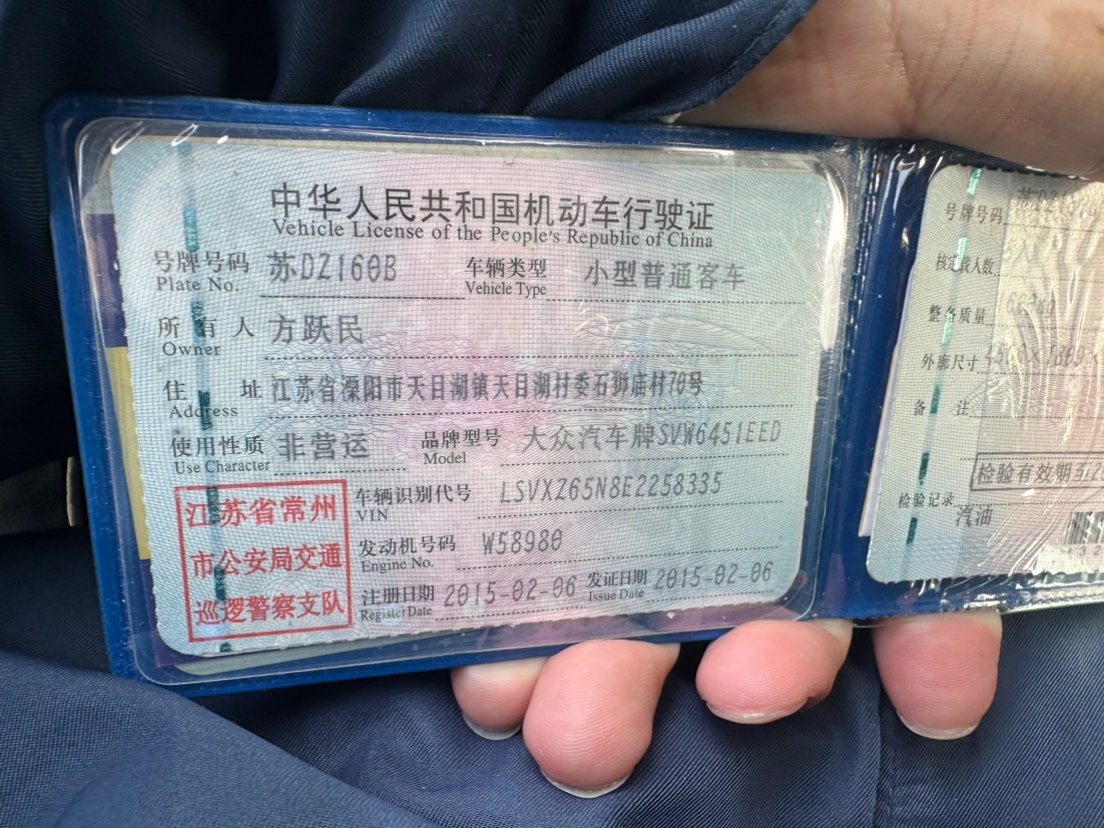 中华人民共和国机动车行驶证
Vehicle License of the People's Republic of China
号牌号码 苏DZ160B 车辆类型 小型普通客车
Plate No. Vehicle Type
所有人 方跃民
Owner
住址 江苏省溧阳市天目湖镇天目湖村委石狮庙村70号
Address
使用性质 非营运 品牌型号 大众汽车牌SVW6451EED
Use Character Model
江苏省常州
市公安局交通
巡逻警察支队
车辆识别代号 LSVXZ65N8E2258335
VIN
发动机号码 W58980
Engine No.
注册日期 2015-02-06 发证日期 2015-02-06
Register Date Issue Date
号牌号码 苏DZ1
核定载人数
整备质量
外廓尺寸
备注
检验有效期至2
检验记录
汽油